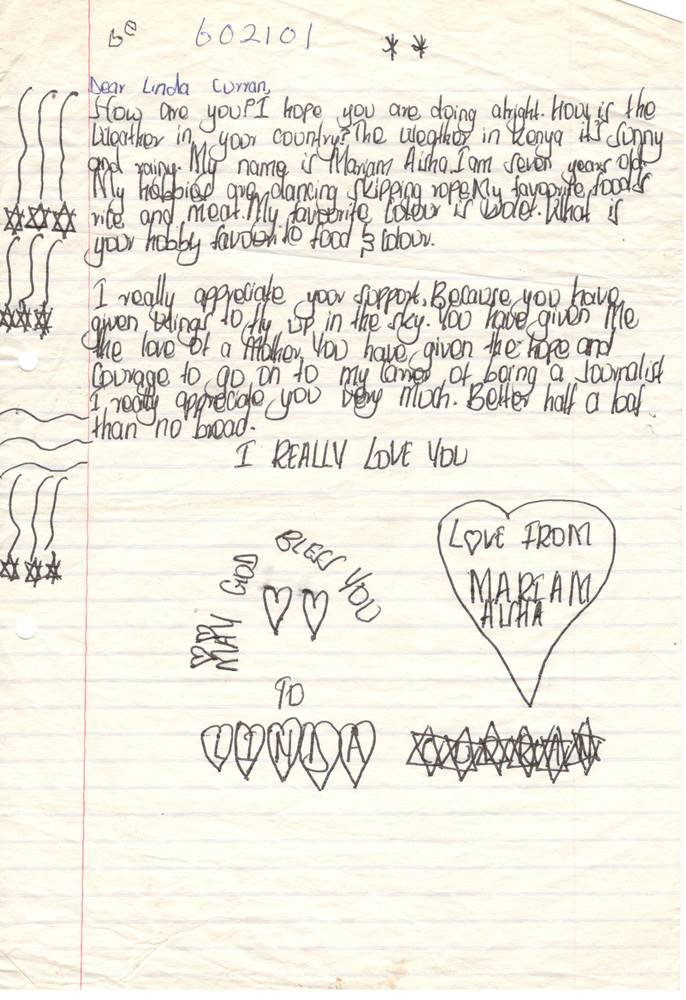 602101
Dear Linda Curran,
How are you? I hope you are doing alright. How is the
weather in your country? The weather in Kenya its sunny
and rainy. My name is Mariam Aisha. I am seven years old
My hobbies are dancing skipping rope. My favourite food is
rice and meat. My favourite colour is violet. What is
your hobby favourite food & colour.
I really appreciate your support. Because you have
given wings to fly up in the sky. You have given me
the love of a Mother. You have given the hope and
courage to go on to my career of being a Journalist
I really appreciate you very much. Better half a loaf
than no bread.
I REALLY LOVE YOU
LOVE FROM
MARIAM
AISHA
MAY GOD BLESS YOU
TO
LINDA CURRAN